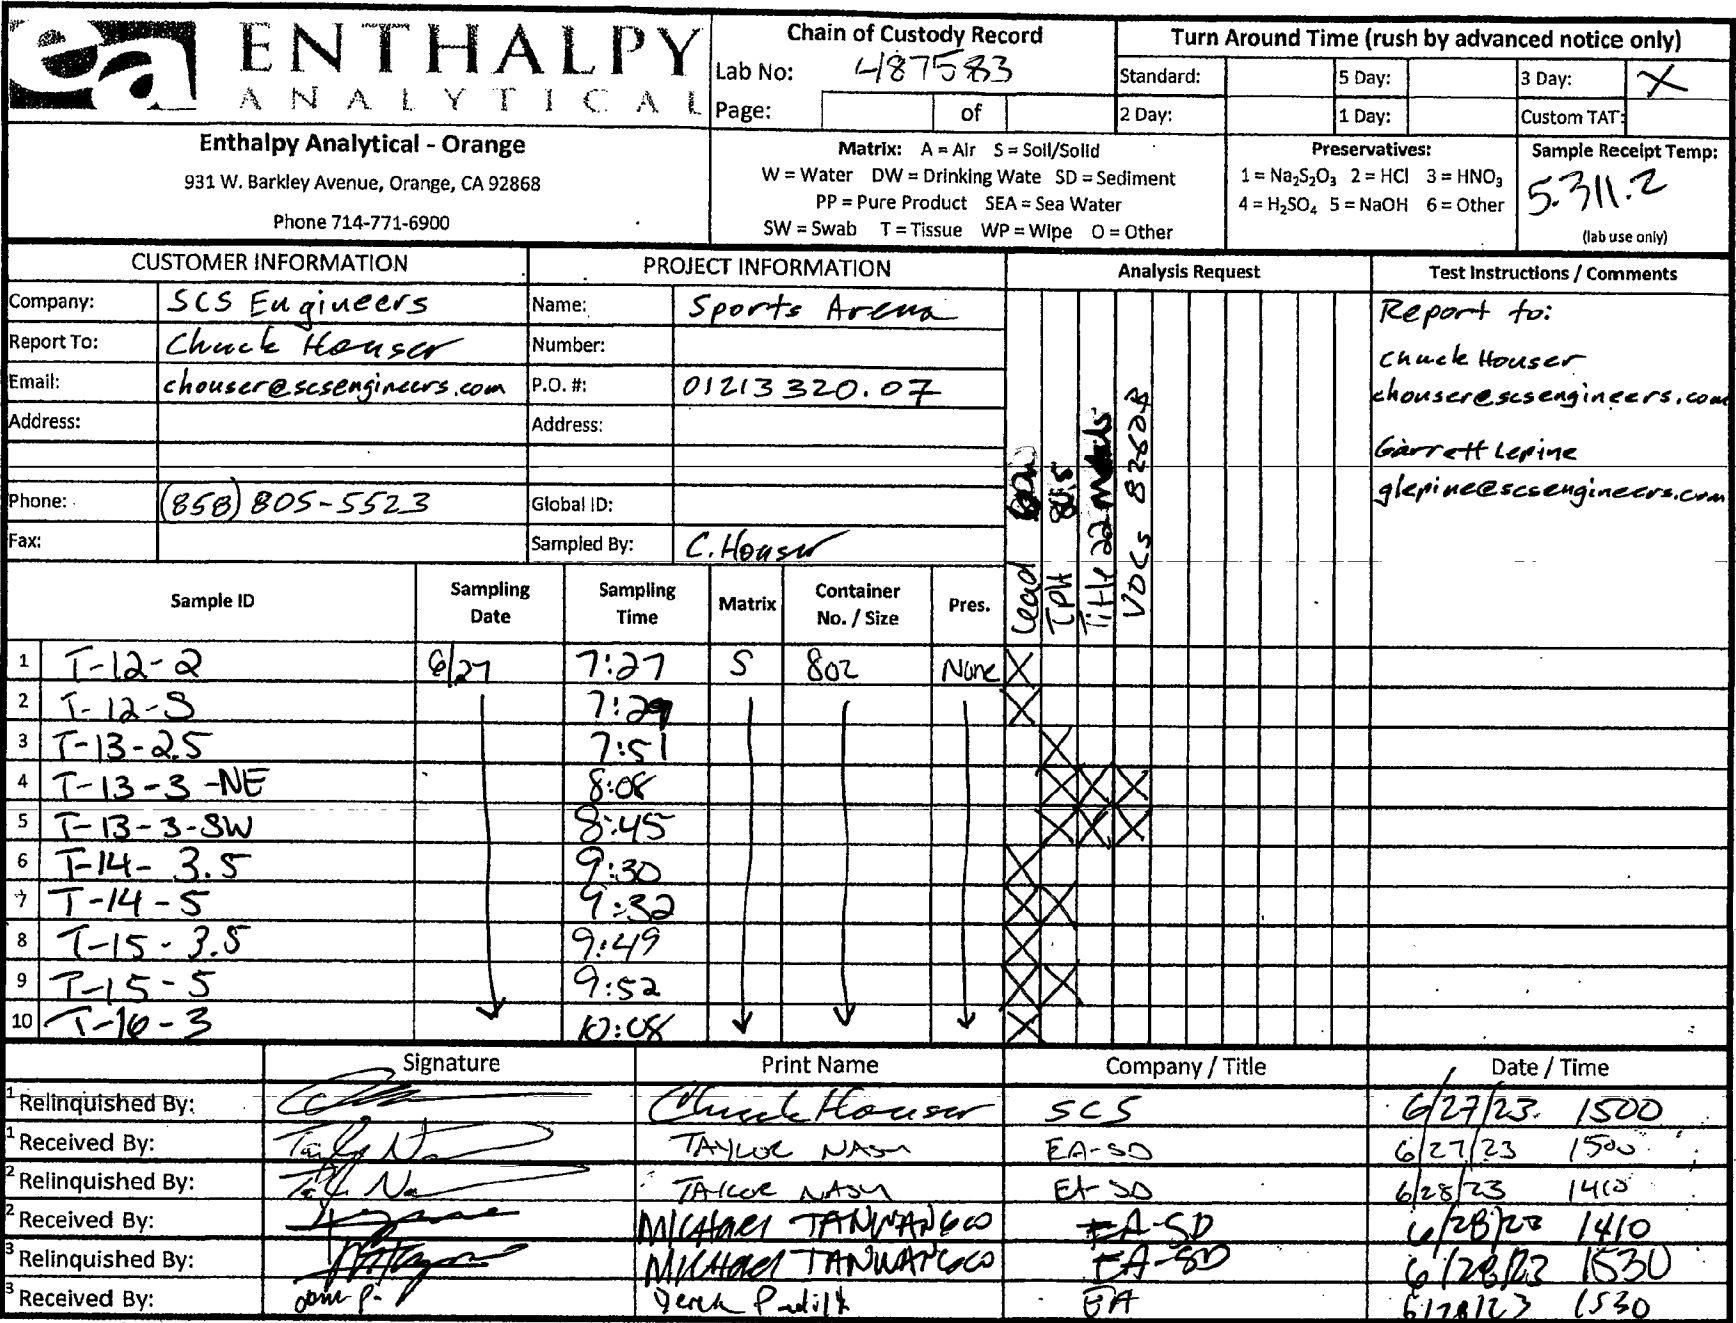 ea ENTHALPY
ANALYTICAL
Enthalpy Analytical - Orange
931 W. Barkley Avenue, Orange, CA 92868
Phone 714-771-6900
Chain of Custody Record
Lab No: 487583
Page: of
Turn Around Time (rush by advanced notice only)
Standard: 5 Day: 3 Day: X
2 Day: 1 Day: Custom TAT:
Matrix: A = Air S = Soil/Solid
W = Water DW = Drinking Wate SD = Sediment
PP = Pure Product SEA = Sea Water
SW = Swab T = Tissue WP = Wipe O = Other
Preservatives:
1 = Na₂S₂O₃ 2 = HCl 3 = HNO₃
4 = H₂SO₄ 5 = NaOH 6 = Other
Sample Receipt Temp:
5.3/1.2
(lab use only)
CUSTOMER INFORMATION
Company: SCS Engineers
Report To: Chuck Houser
Email: chouser@scsengineers.com
Address:
Phone: (858) 805-5523
Fax:
PROJECT INFORMATION
Name: Sports Arena
Number:
P.O. #: 01213320.07
Address:
Global ID:
Sampled By: C. Houser
Analysis Request
Lead
TPH 8015
Title 22 Metals
VOCs 8260B
Test Instructions / Comments
Report to:
Chuck Houser
chouser@scsengineers.com
Garrett Lepine
glepine@scsengineers.com
Sample ID Sampling Date Sampling Time Matrix Container No. / Size Pres.
1 T-12-2 6/27 7:27 S 8oz None X
2 T-12-5 7:29 X
3 T-13-2.5 7:51 X
4 T-13-3-NE 8:08 X X X
5 T-13-3-SW 8:45 X X X
6 T-14-3.5 9:30 X
7 T-14-5 9:32 X X
8 T-15-3.5 9:49 X
9 T-15-5 9:52 X X
10 T-16-3 10:08 X
Signature Print Name Company / Title Date / Time
1 Relinquished By: Chuck Houser SCS 6/27/23 1500
1 Received By: TAYLOR NASH EA-SD 6/27/23 1500
2 Relinquished By: TAYLOR NASH EA-SD 6/28/23 1410
2 Received By: MICHAEL TANWANGCO EA-SD 6/28/23 1410
3 Relinquished By: MICHAEL TANWANGCO EA-SD 6/28/23 1530
3 Received By: EA 6/28/23 1530